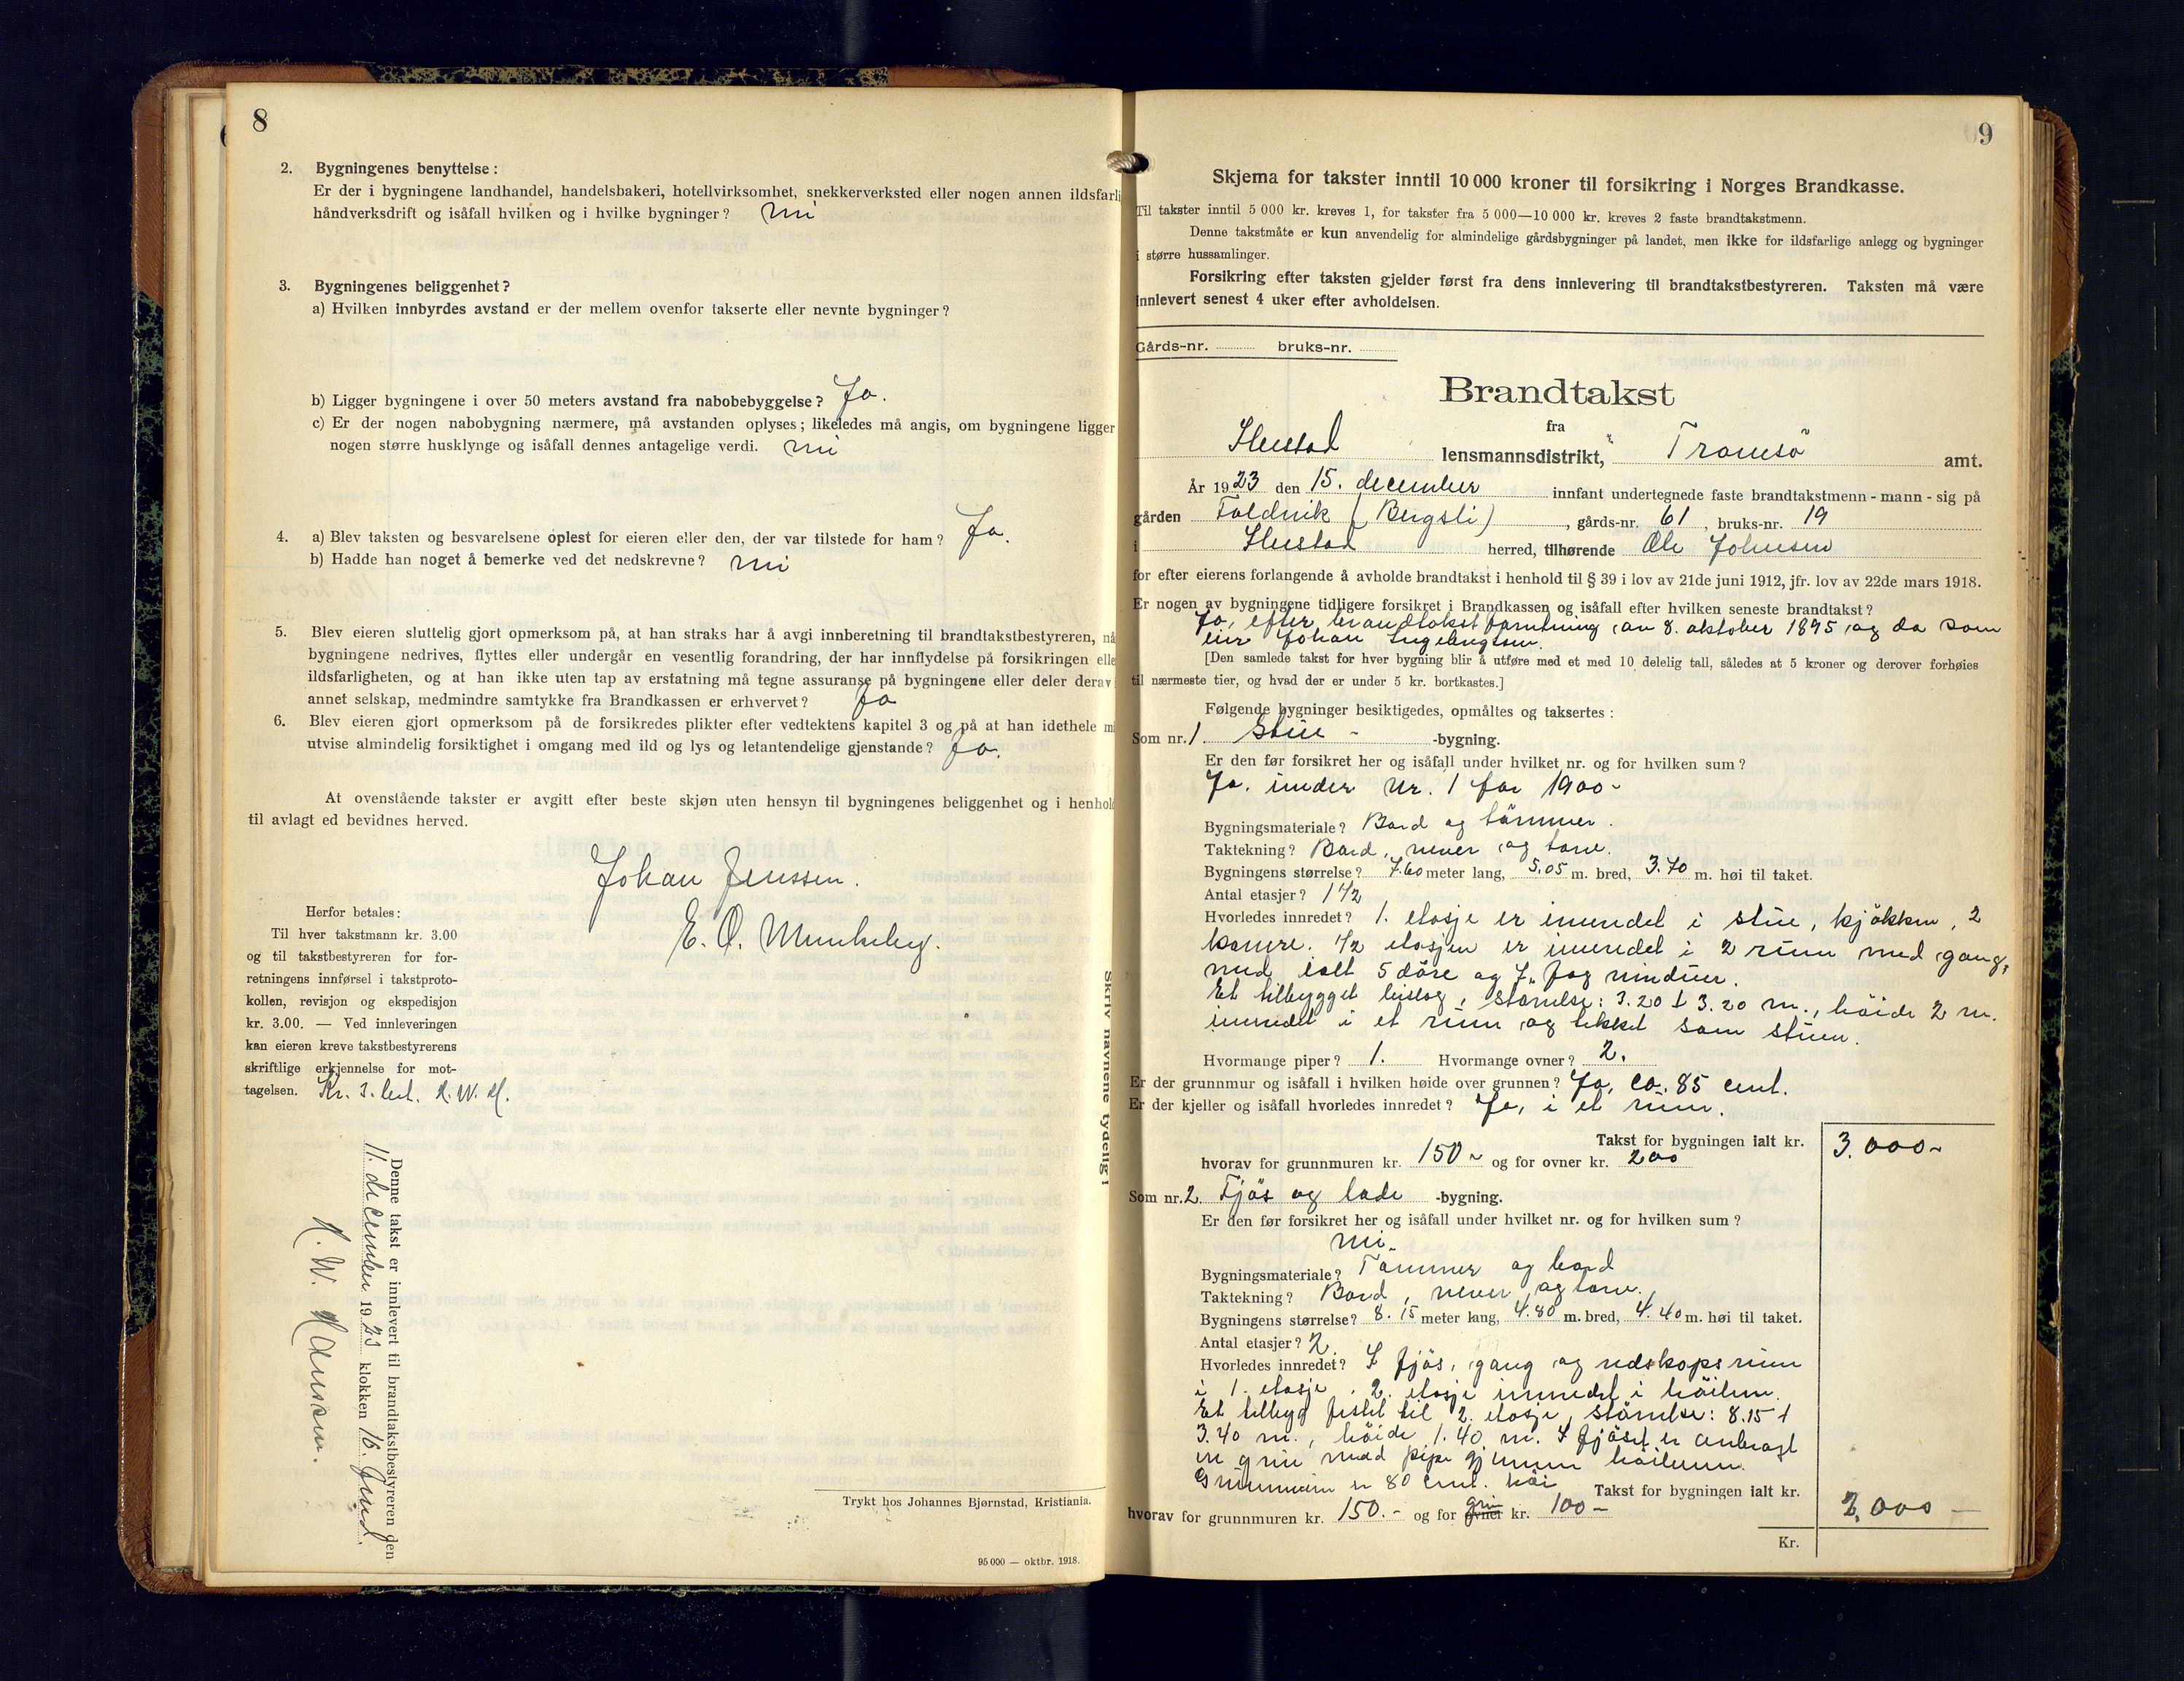 8
2. Bygningenes benyttelse:
Er der i bygningene landhandel, handelsbakeri, hotellvirksomhet, snekkerverksted eller nogen annen ildsfarli
håndverksdrift og isåfall hvilken og i hvilke bygninger? nei
3. Bygningenes beliggenhet?
a) Hvilken innbyrdes avstand er der mellem ovenfor takserte eller nevnte bygninger?
b) Ligger bygningene i over 50 meters avstand fra nabobebyggelse? Ja.
c) Er der nogen nabobygning nærmere, må avstanden oplyses; likeledes må angis, om bygningene ligger
nogen større husklynge og isåfall dennes antagelige verdi. nei
4. a) Blev taksten og besvarelsene oplest for eieren eller den, der var tilstede for ham? Ja.
b) Hadde han noget å bemerke ved det nedskrevne? nei
5. Blev eieren sluttelig gjort opmerksom på, at han straks har å avgi innberetning til brandtakstbestyreren, nå
bygningene nedrives, flyttes eller undergår en vesentlig forandring, der har innflydelse på forsikringen elle
ildsfarligheten, og at han ikke uten tap av erstatning må tegne assuranse på bygningene eller deler derav
annet selskap, medmindre samtykke fra Brandkassen er erhvervet? Ja
6. Blev eieren gjort opmerksom på de forsikredes plikter efter vedtektens kapitel 3 og på at han idethele m
utvise almindelig forsiktighet i omgang med ild og lys og letantendelige gjenstande? Ja.
At ovenstående takster er avgitt efter beste skjøn uten hensyn til bygningenes beliggenhet og i henhold
til avlagt ed bevidnes herved.
Johan Jenssen.
E. O. Munkeberg.
Herfor betales:
Til hver takstmann kr. 3.00
og til takstbestyreren for for-
retningens innførsel i takstproto-
kollen, revisjon og ekspedisjon
kr. 3.00. — Ved innleveringen
kan eieren kreve takstbestyrerens
skriftlige erkjennelse for mot-
tagelsen. Kr. 3. bet. R. W. H.
Denne takst er innlevert til brandtakstbestyreren den
11. december 1923 klokken 16.
R. W. Hansson.
Skriv navnene tydelig!
Trykt hos Johannes Bjørnstad, Kristiania.
95 000 — oktbr. 1918.
9
Skjema for takster inntil 10 000 kroner til forsikring i Norges Brandkasse.
Til takster inntil 5 000 kr. kreves 1, for takster fra 5 000—10 000 kr. kreves 2 faste brandtakstmenn.
Denne takstmåte er kun anvendelig for almindelige gårdsbygninger på landet, men ikke for ildsfarlige anlegg og bygninger
i større hussamlinger.
Forsikring efter taksten gjelder først fra dens innlevering til brandtakstbestyreren. Taksten må være
innlevert senest 4 uker efter avholdelsen.
Gårds-nr. bruks-nr.
Brandtakst
fra
Ibestad lensmannsdistrikt, Tromsö amt.
År 1923 den 15. december innfant undertegnede faste brandtakstmenn - mann - sig på
gården Foldvik (Bergsli), gårds-nr. 61, bruks-nr. 19
i Ibestad herred, tilhørende Ole Johnsen
for efter eierens forlangende å avholde brandtakst i henhold til § 39 i lov av 21de juni 1912, jfr. lov av 22de mars 1918.
Er nogen av bygningene tidligere forsikret i Brandkassen og isåfall efter hvilken seneste brandtakst?
Ja, efter brandtakstforretning av 8. oktober 1895, og da som
eier Johan Ingebrigtsen.
[Den samlede takst for hver bygning blir å utføre med et med 10 delelig tall, således at 5 kroner og derover forhøies
til nærmeste tier, og hvad der er under 5 kr. bortkastes.]
Følgende bygninger besiktigedes, opmåltes og taksertes:
Som nr. 1. Stue- -bygning.
Er den før forsikret her og isåfall under hvilket nr. og for hvilken sum?
Ja. under Nr. 1 for 1900-
Bygningsmateriale? Bord og tömmer.
Taktekning? Bord, never og torv.
Bygningens størrelse? 7.60 meter lang, 5.05 m. bred, 3.70 m. høi til taket.
Antal etasjer? 1 1/2
Hvorledes innredet? 1. etasje er innredet i stue, kjökken, 2
kamre. 1/2 etasjen er innredet i 2 rum med gang,
med ialt 5 döre og 7. fag vinduer.
Et tilbygget bislag, störrelse: 3.20 + 3.20 m., höide 2 m.
innredet i et rum og tekket som stuen.
Hvormange piper? 1. Hvormange ovner? 2.
Er der grunnmur og isåfall i hvilken høide over grunnen? Ja, ca. 85 cent.
Er der kjeller og isåfall hvorledes innredet? Ja, i et rum.
Takst for bygningen ialt kr. 3.000-
hvorav for grunnmuren kr. 150- og for ovner kr. 200
Som nr. 2. Fjös og lade -bygning.
Er den før forsikret her og isåfall under hvilket nr. og for hvilken sum?
nei.
Bygningsmateriale? Tömmer og bord
Taktekning? Bord, never og torv.
Bygningens størrelse? 8.15 meter lang, 4.80 m. bred, 4.40 m. høi til taket.
Antal etasjer? 2.
Hvorledes innredet? I fjös, gang og redskapsrum
i 1. etasje. 2. etasje innredet i höilem.
Et tilbygg festet til 2. etasje, störrelse: 8.15 +
3.40 m., höide 1.40 m. I fjöset er anbragt
en grue med pipe gjennem höilemen.
Grunnmuren er 80 cent. höi
Takst for bygningen ialt kr. 2.000 -
hvorav for grunnmuren kr. 150.- og for ovner grue kr. 100-
Kr.